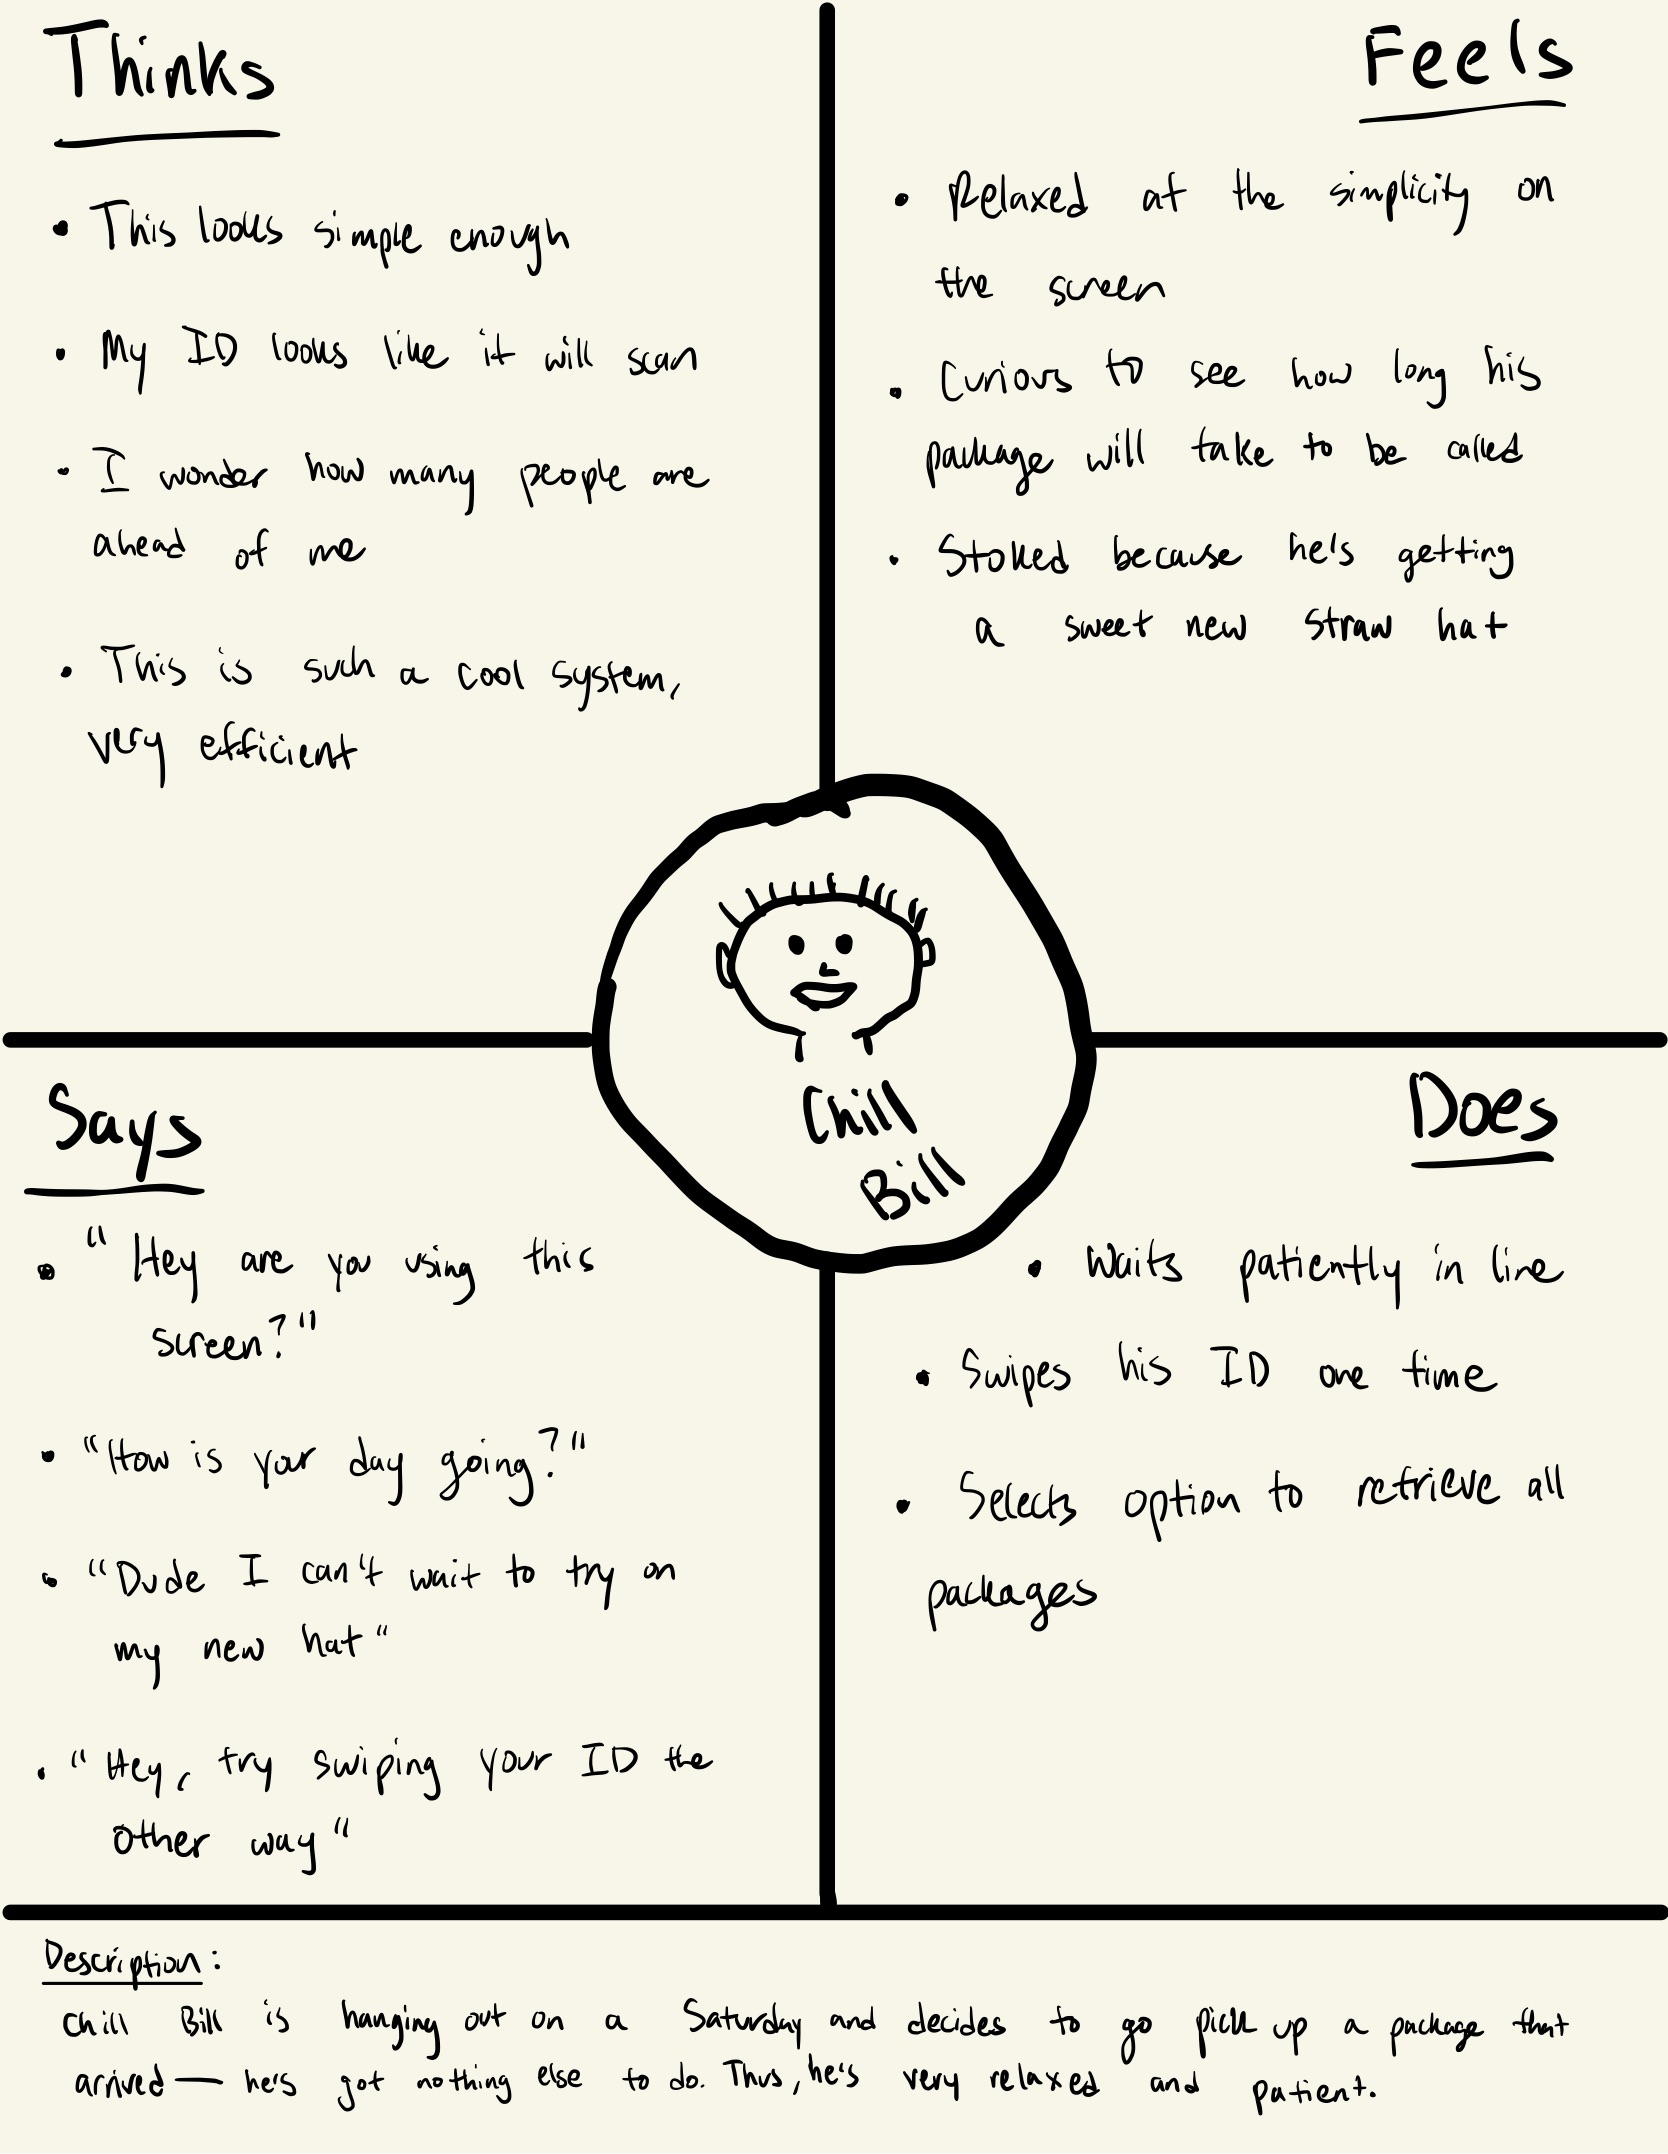 Thinks
• This looks simple enough
• My ID looks like it will scan
• I wonder how many people are
ahead of me
• This is such a cool system,
very efficient
Feels
• Relaxed at the simplicity on
the screen
• Curious to see how long his
package will take to be called
• Stoked because he's getting
a sweet new straw hat
Chill
Bill
Says
• "Hey are you using this
screen?"
• "How is your day going?"
• "Dude I can't wait to try on
my new hat"
• "Hey, try swiping your ID the
other way"
Does
• Waits patiently in line
• Swipes his ID one time
• Selects option to retrieve all
packages
Description:
Chill Bill is hanging out on a Saturday and decides to go pick up a package that
arrived — he's got nothing else to do. Thus, he's very relaxed and patient.